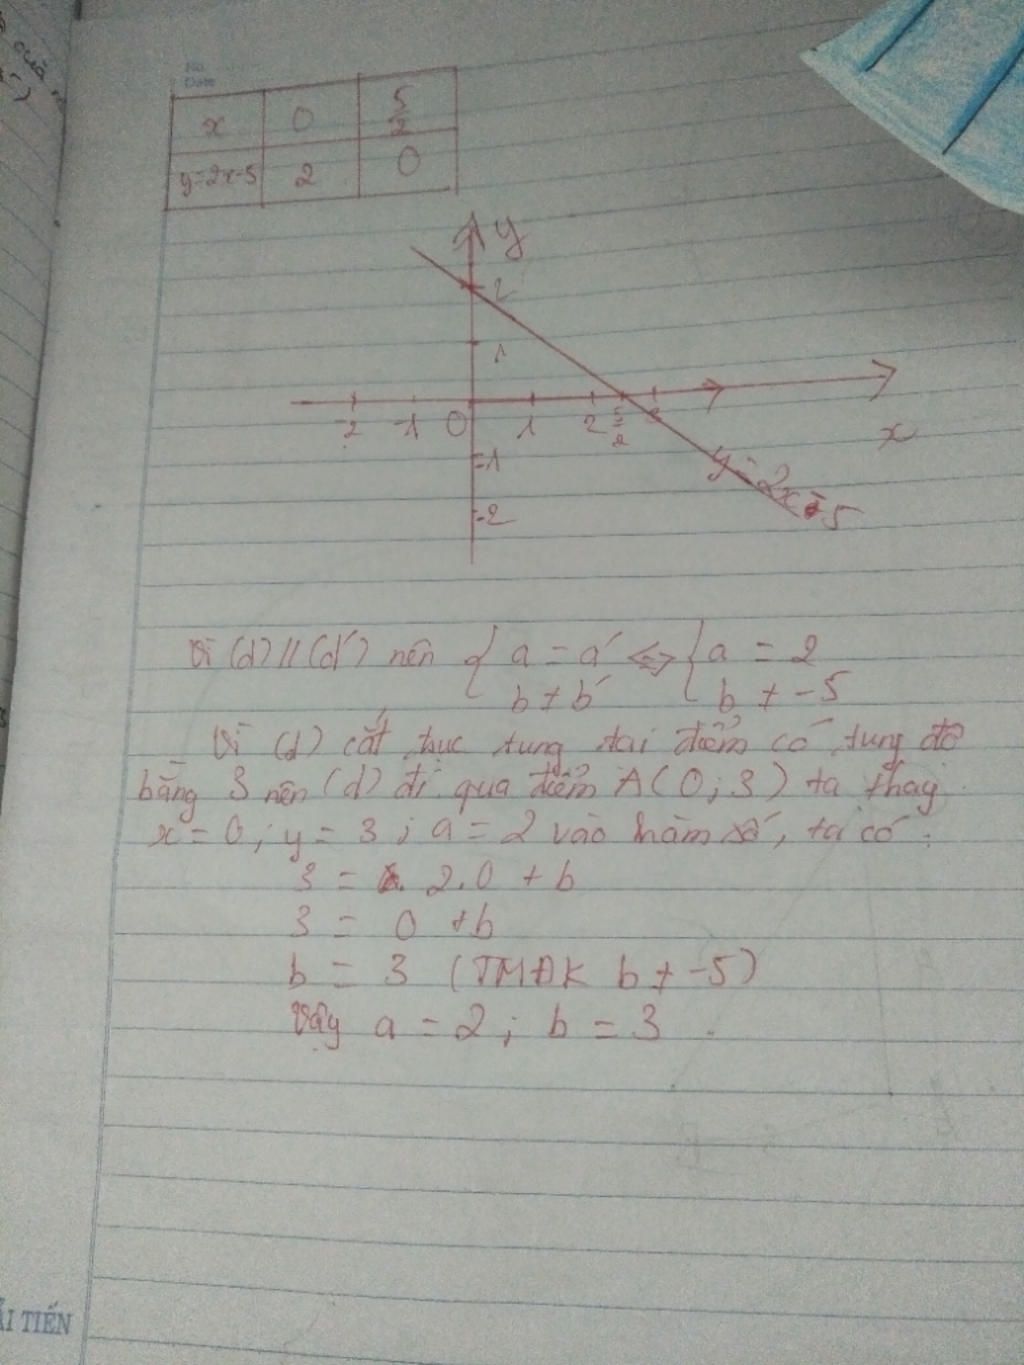 No.
Date
x 0 5/2
y=2x-5 2 0
y
2
1
-2 -1 0 1 2 5/2 3
x
-1
y=2x-5
-2
Vì (d) // (d') nên { a = a' <=> { a = 2
b ≠ b' b ≠ -5
Vì (d) cắt trục tung tại điểm có tung độ
bằng 3 nên (d) đi qua điểm A(0;3) ta thay
x = 0; y = 3; a = 2 vào hàm số, ta có:
3 = 2.0 + b
3 = 0 + b
b = 3 (TMĐK b ≠ -5)
Vậy a = 2; b = 3.
ẢI TIẾN